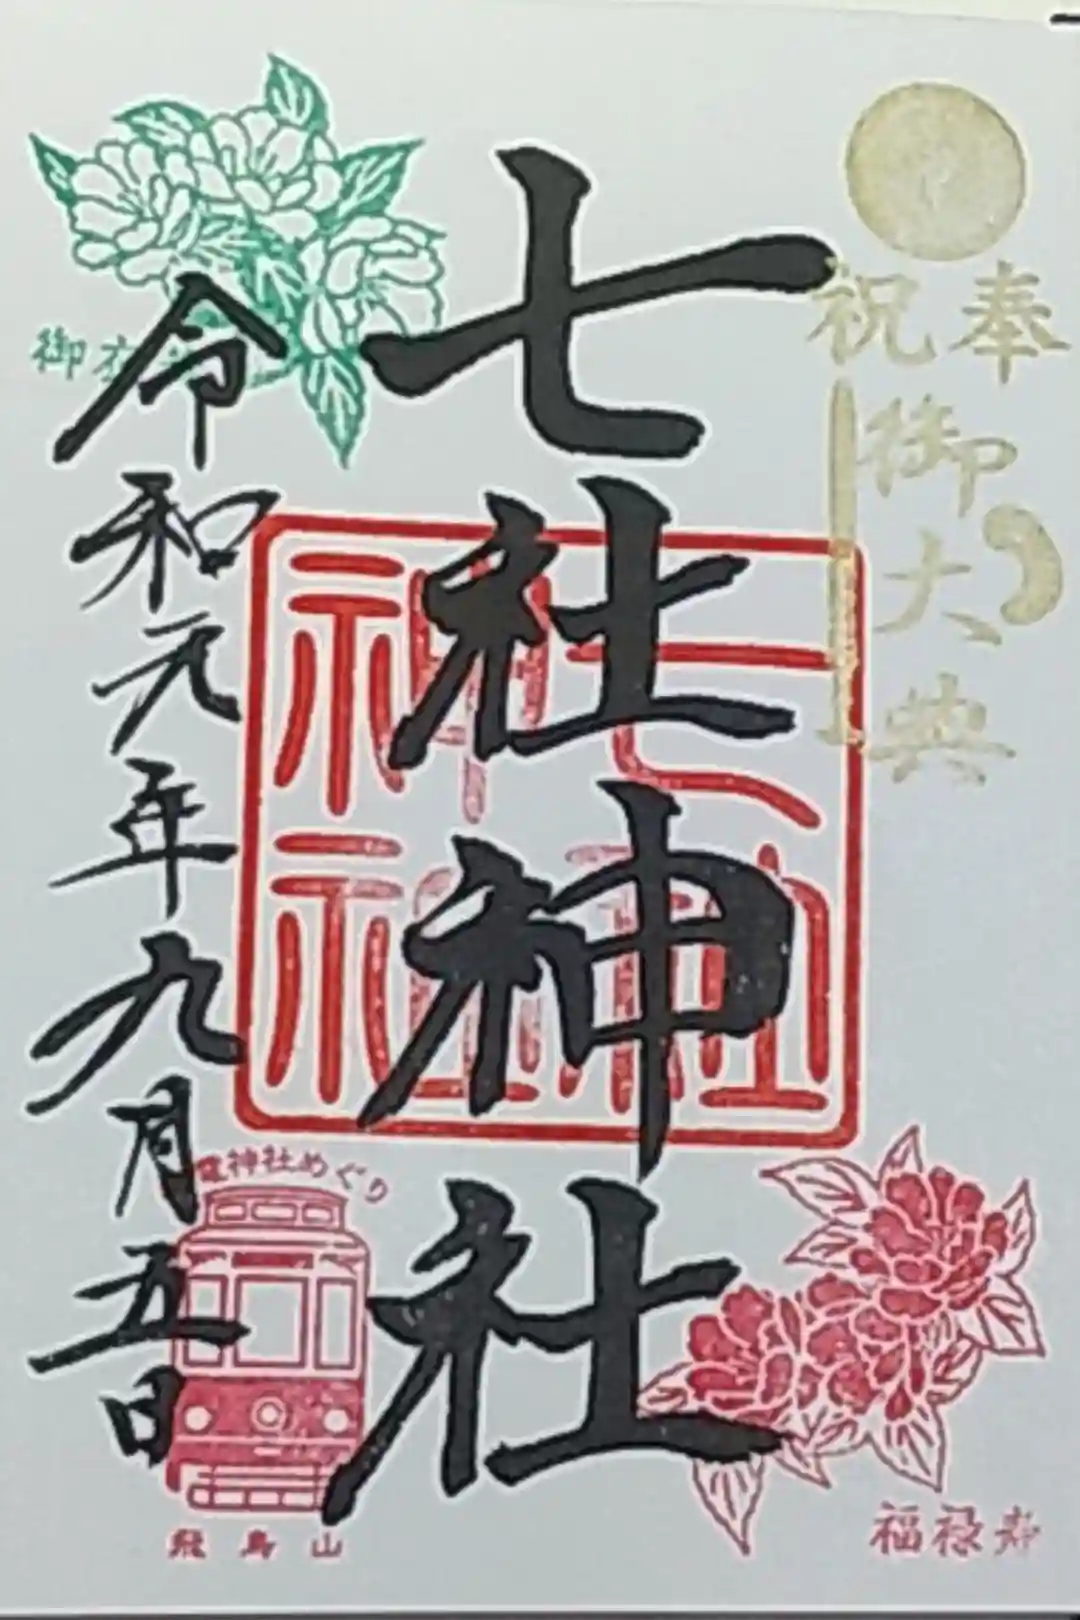 奉
祝御大典
七社神社
七社神社
令和元年九月五日
御
電神社めぐり
飛鳥山
福禄寿